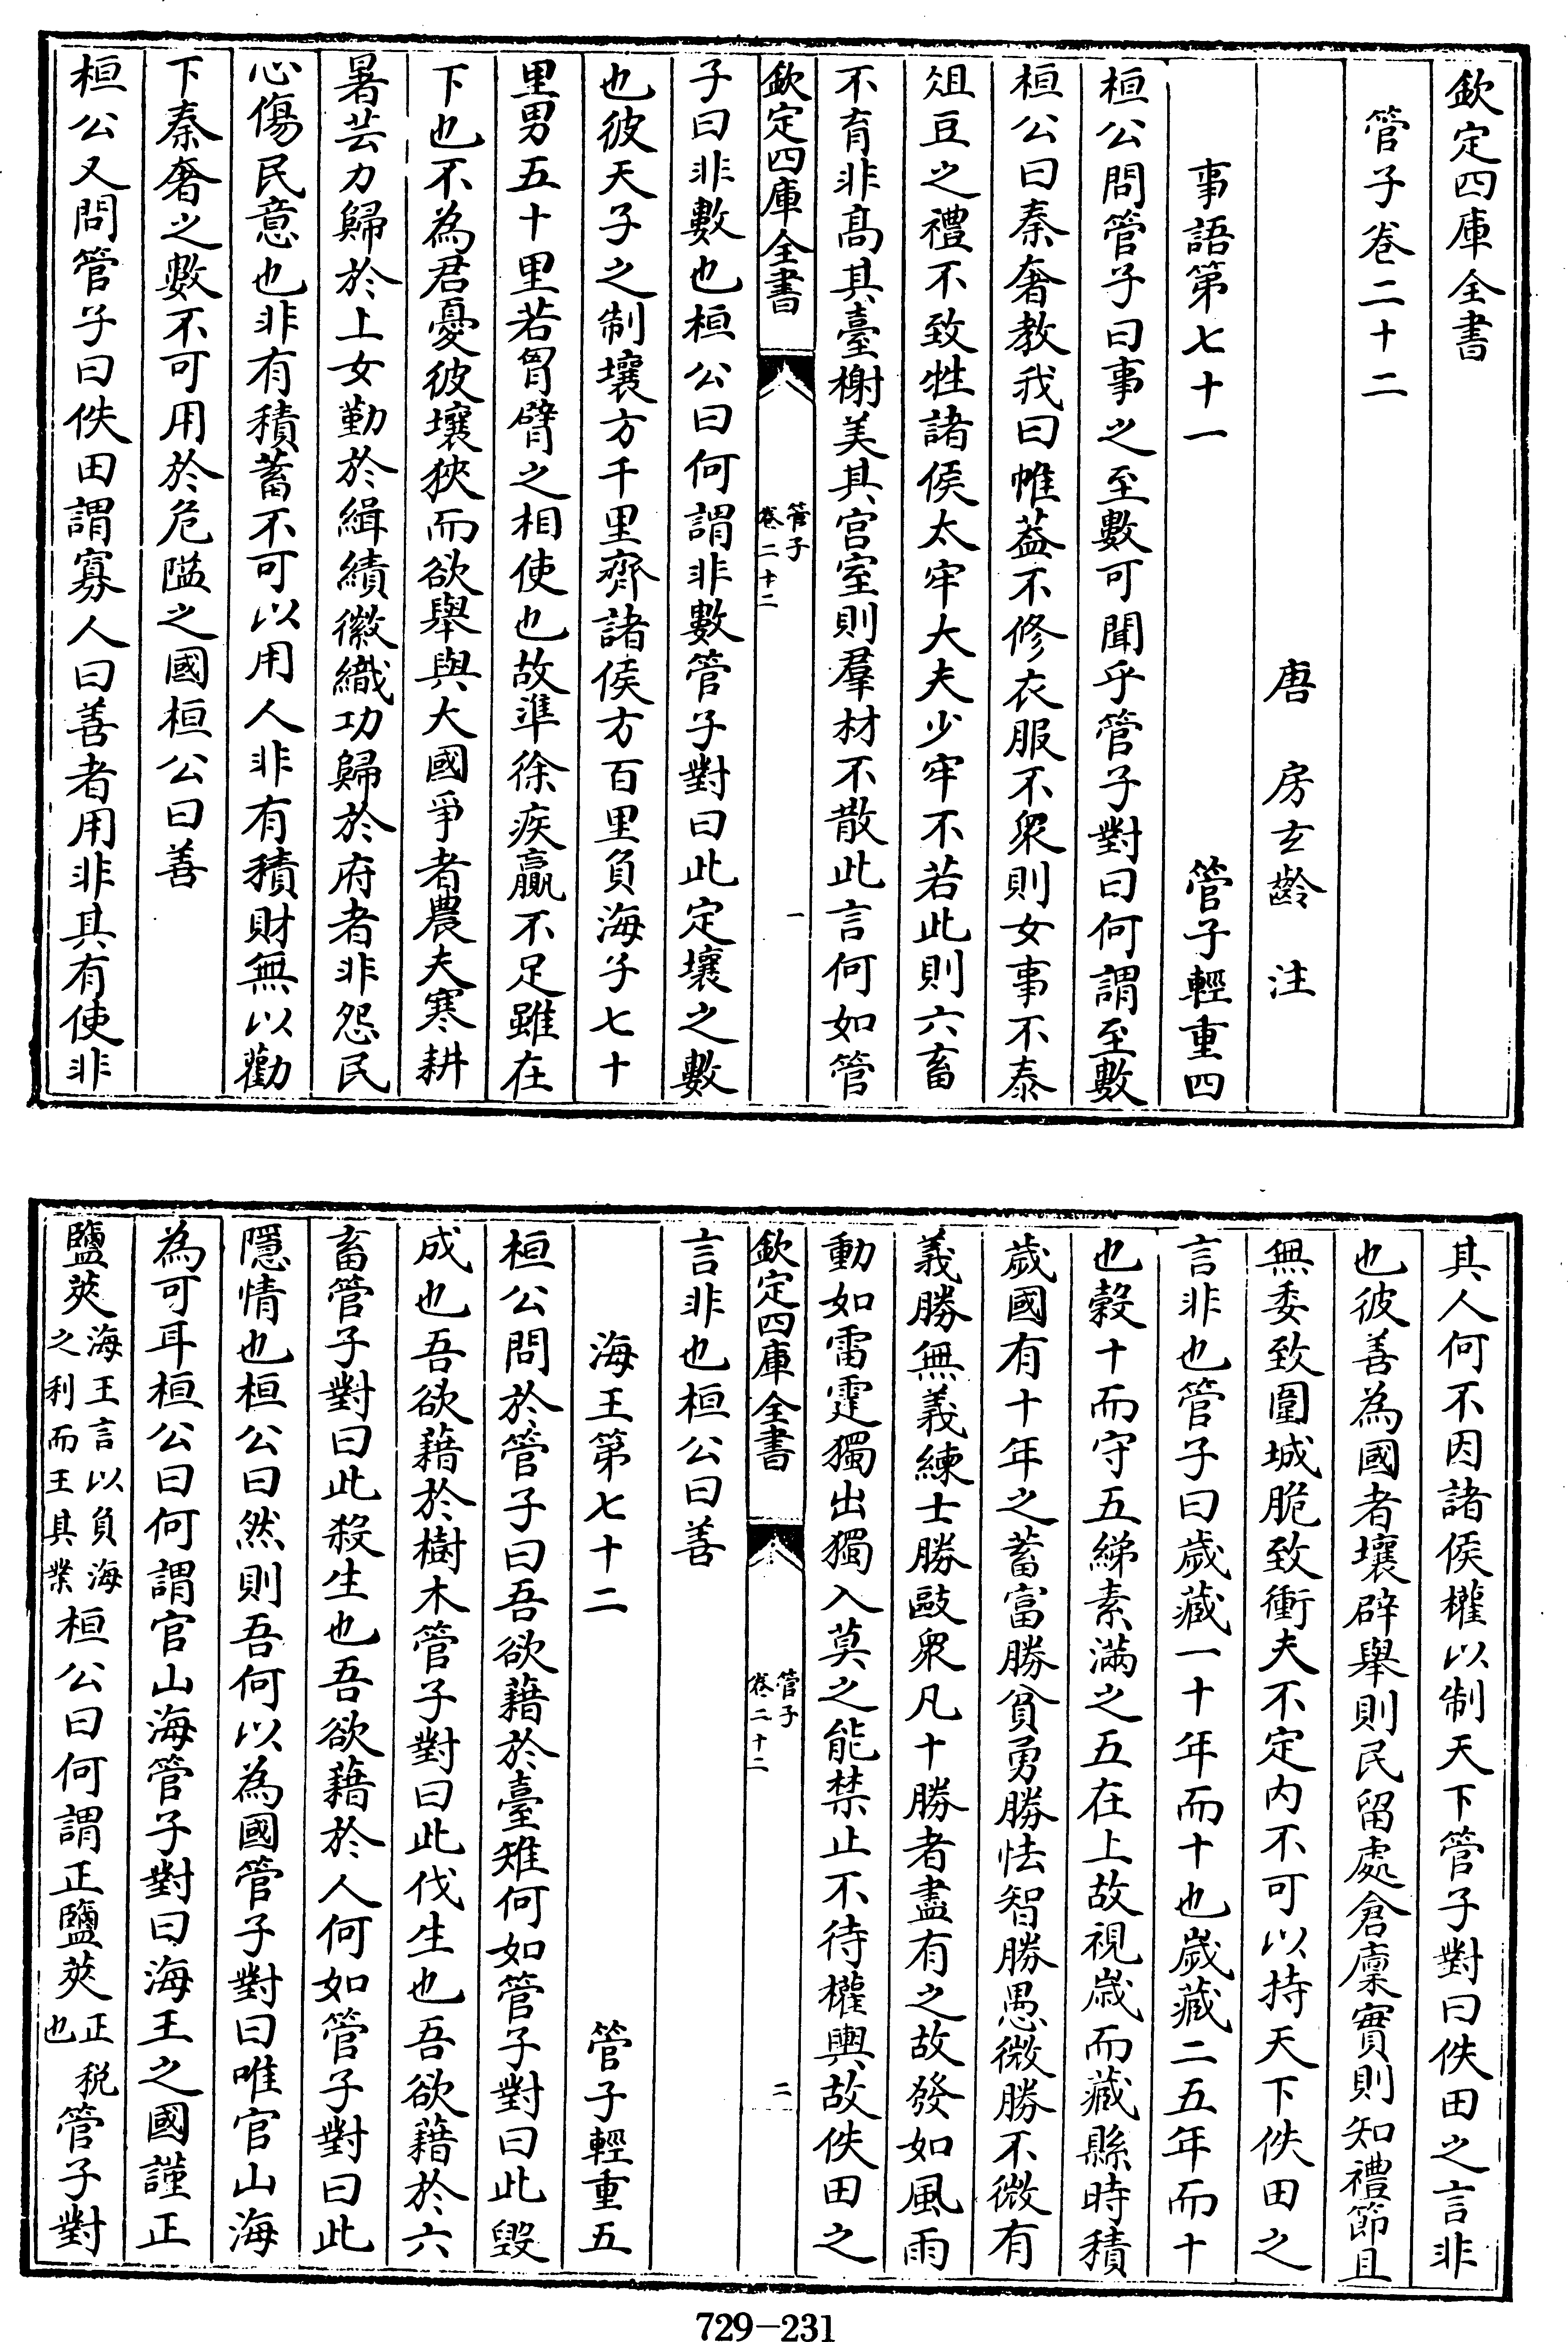 欽定四庫全書
管子卷二十二
唐 房玄齡 注
事語第七十一 管子輕重四
桓公問管子曰事之至數可聞乎管子對曰何謂至數
桓公曰秦奢教我曰帷葢不修衣服不衆則女事不泰
俎豆之禮不致牲諸侯太牢大夫少牢不若此則六畜
不育非髙其臺榭美其宫室則羣材不散此言何如管
欽定四庫全書
管子
卷二十二
一
子曰非數也桓公曰何謂非數管子對曰此定壤之數
也彼天子之制壤方千里齊諸侯方百里負海子七十
里男五十里若胷臂之相使也故準徐疾贏不足雖在
下也不為君憂彼壤狹而欲舉與大國爭者農夫寒耕
暑芸力歸於上女勤於緝績徽織功歸於府者非怨民
心傷民意也非有積蓄不可以用人非有積財無以勸
下秦奢之數不可用於危隘之國桓公曰善
桓公又問管子曰佚田謂寡人曰善者用非其有使非
其人何不因諸侯權以制天下管子對曰佚田之言非
也彼善為國者壤辟舉則民留處倉廩實則知禮節且
無委致圍城脆致衝夫不定内不可以持天下佚田之
言非也管子曰歲藏一十年而十也歲藏二五年而十
也榖十而守五綈素滿之五在上故視歲而藏縣時積
歲國有十年之蓄富勝貧勇勝怯智勝愚微勝不微有
義勝無義練士勝敺衆凡十勝者盡有之故發如風雨
動如雷霆獨出獨入莫之能禁止不待權輿故佚田之
欽定四庫全書
管子
卷二十二
二
言非也桓公曰善
海王第七十二 管子輕重五
桓公問於管子曰吾欲藉於臺雉何如管子對曰此毁
成也吾欲藉於樹木管子對曰此伐生也吾欲藉於六
畜管子對曰此殺生也吾欲藉於人何如管子對曰此
隱情也桓公曰然則吾何以為國管子對曰唯官山海
為可耳桓公曰何謂官山海管子對曰海王之國謹正
鹽筴海王言以負海之利而王其業桓公曰何謂正鹽筴正税也管子對
729-231